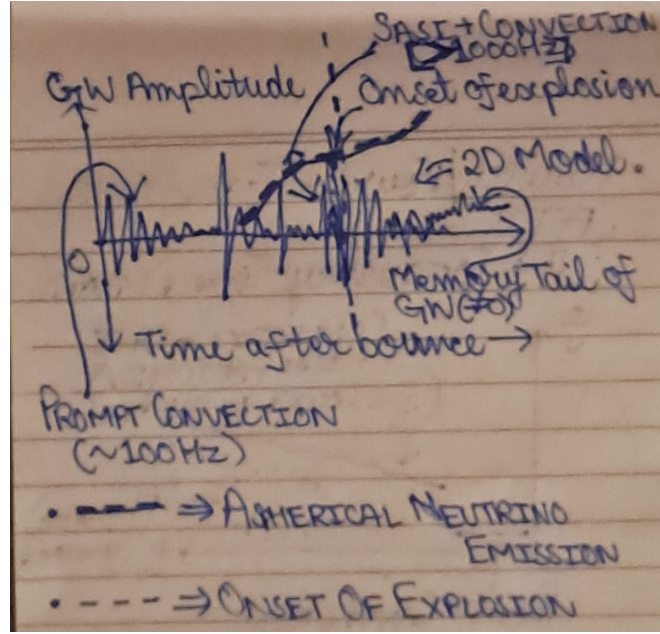 SASI + CONVECTION
1000Hz
GW Amplitude
Onset of explosion
⇐ 2D Model.
O
Memory Tail of
GW(≠0)
Time after bounce →
PROMPT CONVECTION
(~100Hz)
• ---- ⇒ ASHERICAL NEUTRINO
EMISSION
• ---- ⇒ ONSET OF EXPLOSION